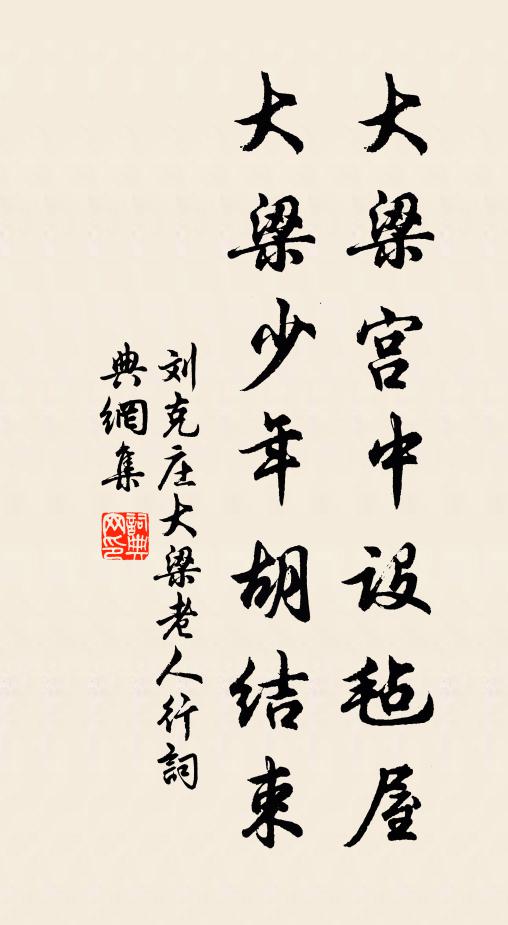 大梁宫中设毡屋
大梁少年胡结束
刘克庄大梁老人行詞
典網集
詞典
网印